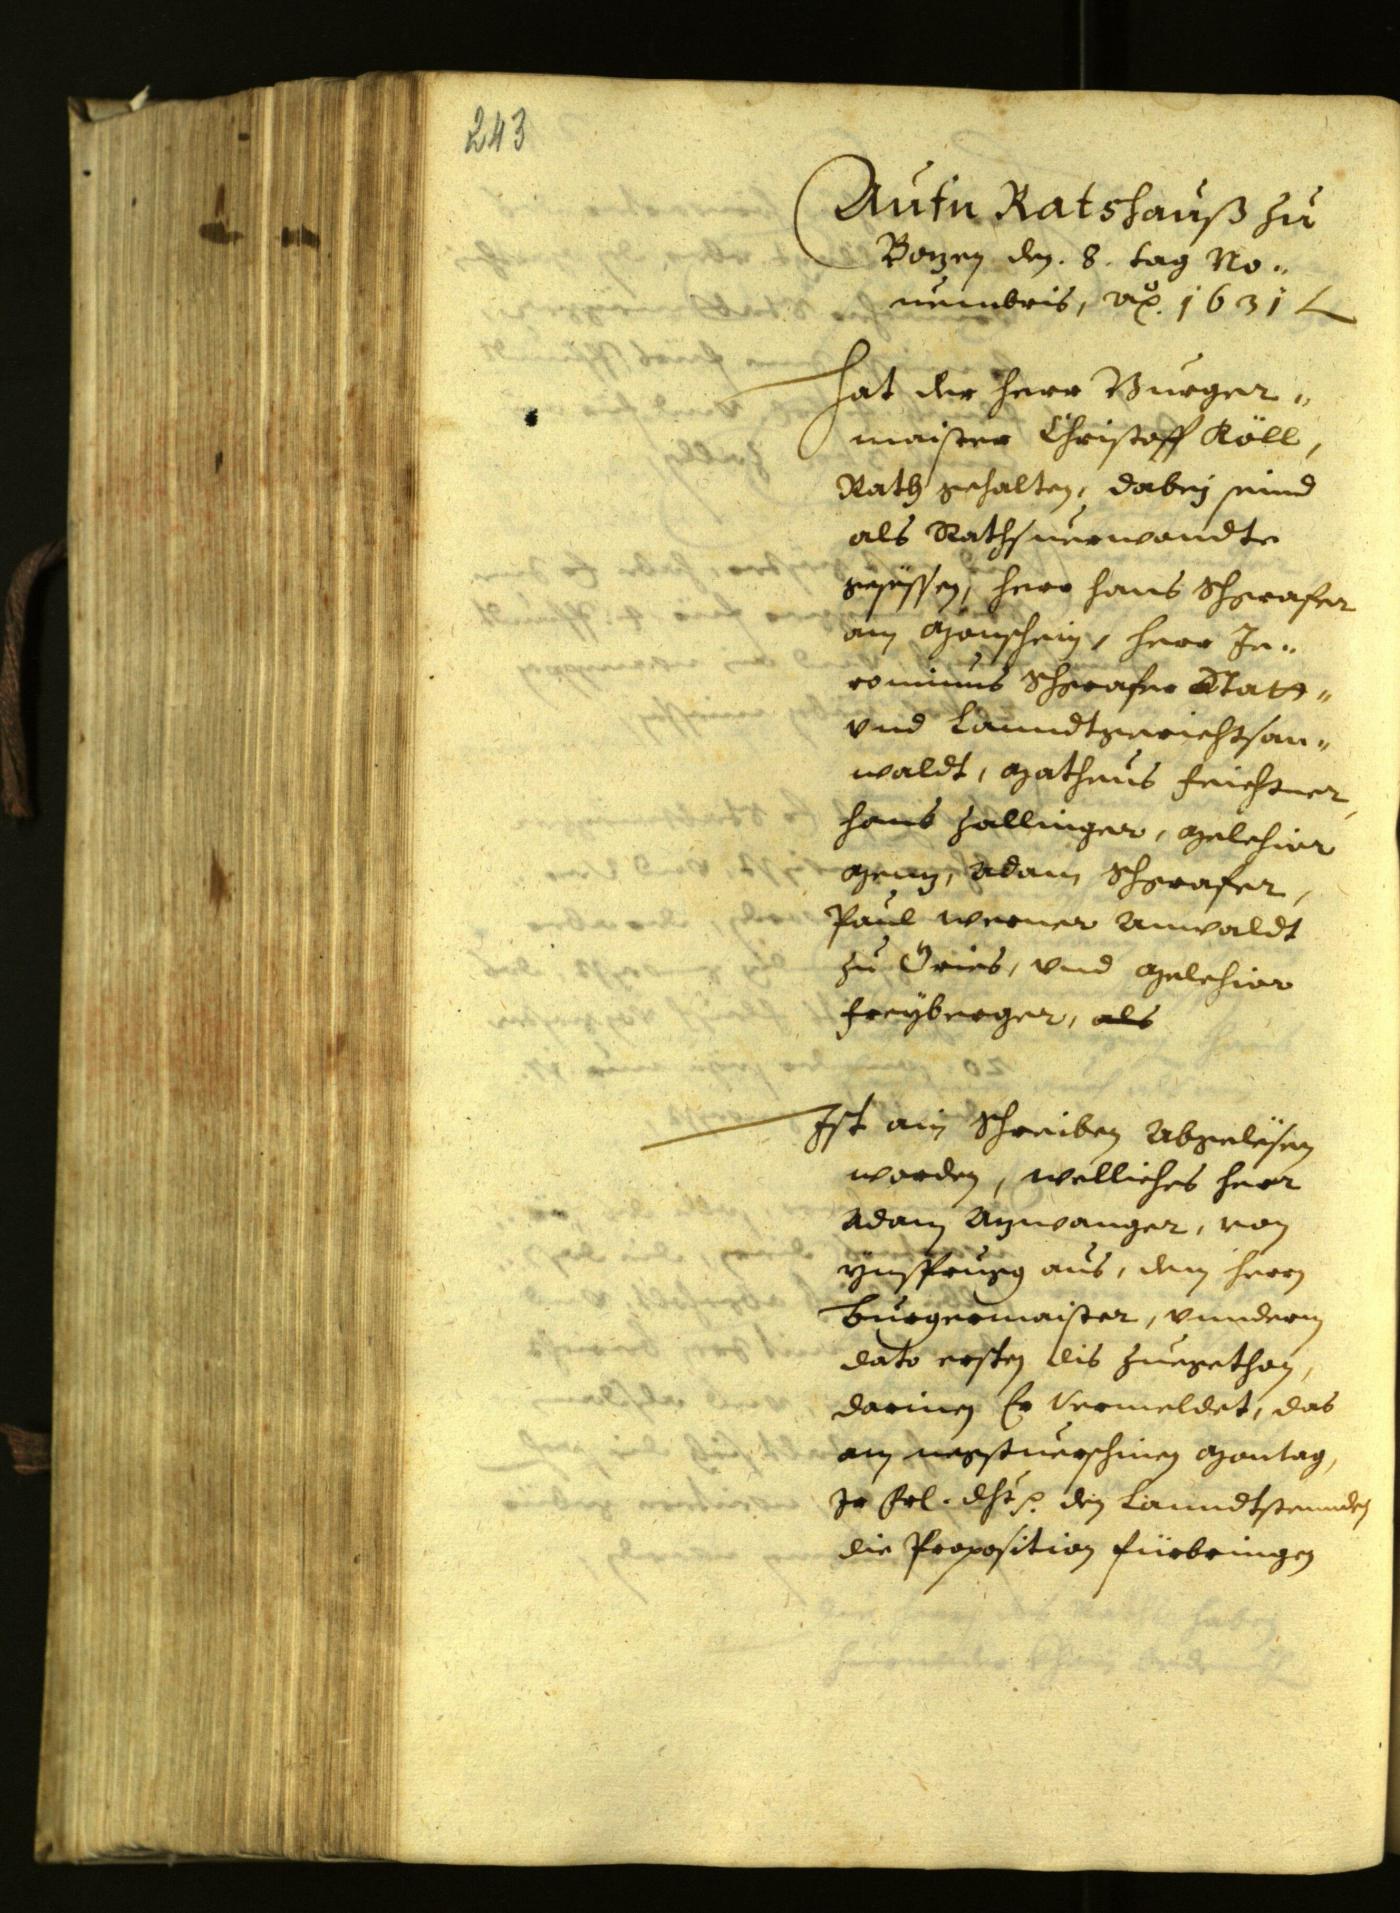 243
Aufn Ratshauß zu
Bozen den. 8. tag No¬
uembris, Aō. 1631
Hat der herr Burger¬
maister Christoff Köll,
Rath gehalten, dabej seind
als Rathsuerwandte
gesessen, herr Hans Schgrafer
am Monschein, herr Je¬
ronimus Schgrafer Statt¬
vnd Lanndtgerichtsan¬
waldt, Matheus Feichtner,
Hans Zallinger, Melchior
Menz, Adam Schgrafer,
Paul Werner Anwaldt
zu Gries, vnd Melchior
Freyberger, als
Ist ain Schreiben Abgelesen
worden, welliches herr
Adam Anwanger, von
Ynsprugg aus, dem herrn
Burgermaister, vnnderm
dato ersten dis zuegethan,
darinen Er Vermeldet, das
am negstuerschinen Montag,
Ir Frl. Dht. den Lanndtstennden
die Proposition fürbringen